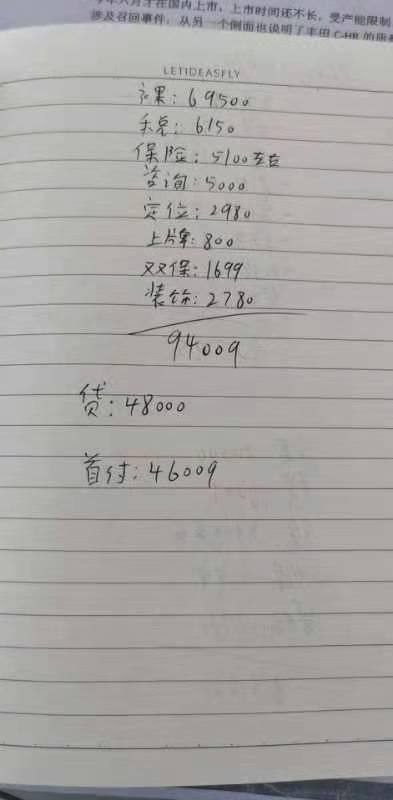 今年六月才在国内上市,上市时间还不长,受产能限制
涉及召回事件,从另一个侧面也说明了丰田C-HR的质
LETIDEASFLY
裸:69500
税:6150
保险:5100左右
咨询:5000
定位:2980
上牌:800
双保:1699
装饰:2780
94009
贷:48000
首付:46009